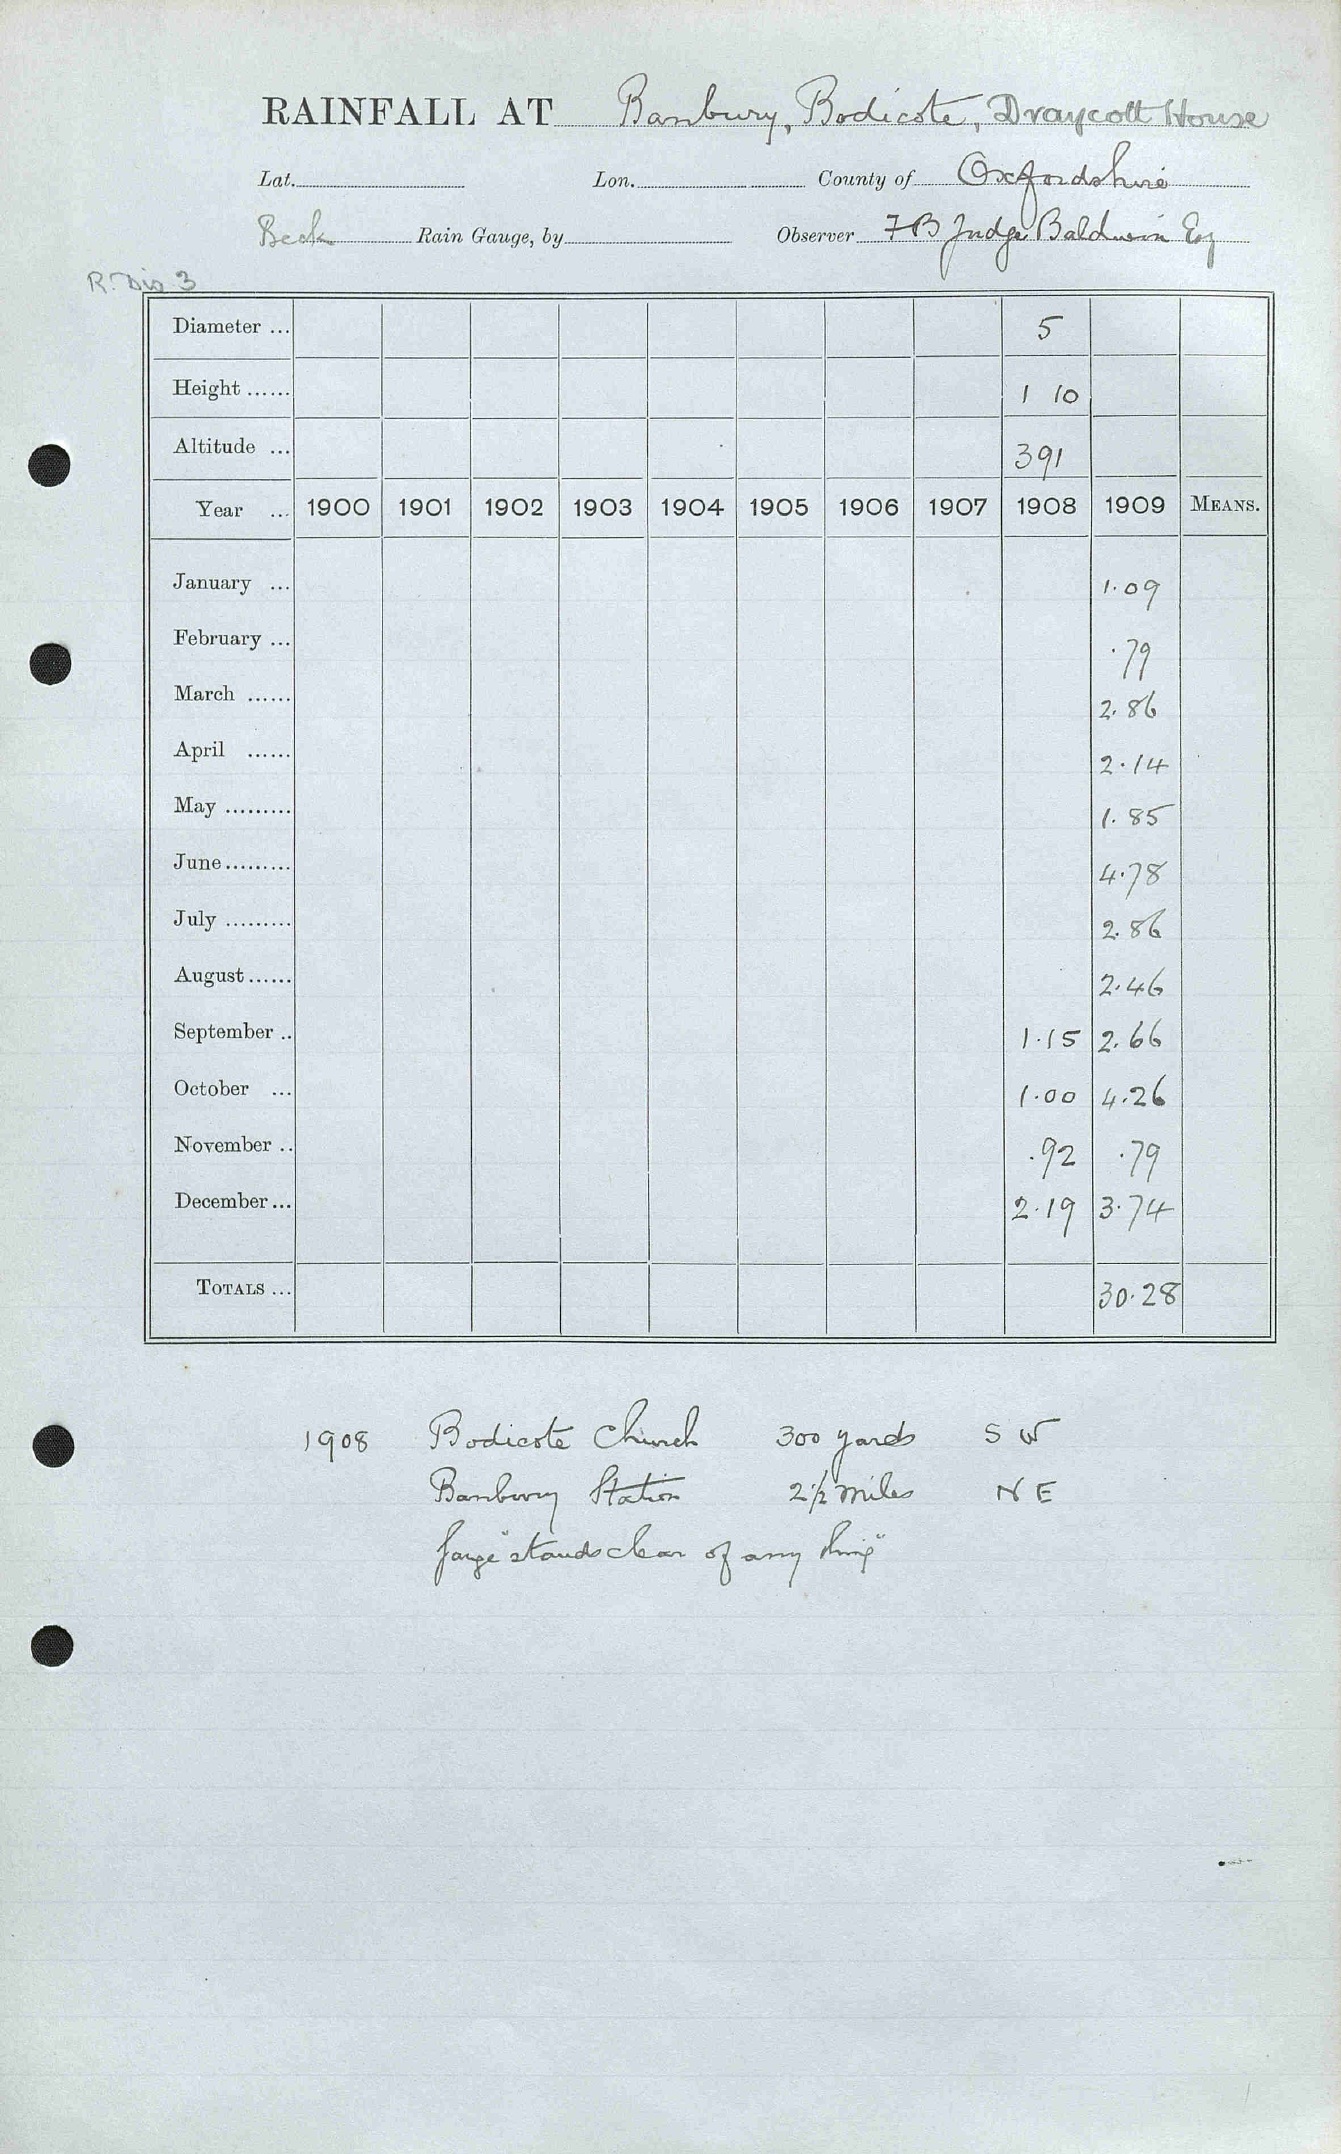 RAINFALL AT Banbury, Bodicote, Draycott House
Lat. Lon. County of Oxfordshire
Beck Rain Gauge, by Observer F B Judge Baldwin Esq
R. Dis 3
Diameter ... 5
Height ...... 1 10
Altitude ... 391
Year ... 1900 1901 1902 1903 1904 1905 1906 1907 1908 1909 MEANS.
January ... 1.09
February ... .79
March ...... 2.86
April ...... 2.14
May ......... 1.85
June......... 4.78
July ......... 2.86
August...... 2.46
September .. 1.15 2.66
October ... 1.00 4.26
November .. .92 .79
December... 2.19 3.74
TOTALS ... 30.28
1908 Bodicote Church 300 yards S W
Banbury Station 2½ miles N E
gauge "stands clear of any thing"